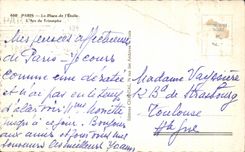 460 PARIS — La Place de l'Étoile
L'Arc de Triomphe
Mes pensées affectueuses
du Paris - je cours
comme une dératée
et n'ai pas eu le temps
d'aller voir Mme
jusqu'à ce jour. Bonjour
aux amis et pour vous
souvenirs les meilleurs Yvonne
Madame Vayssière
12 Bd de Strasbourg
Toulouse
Hte Gne